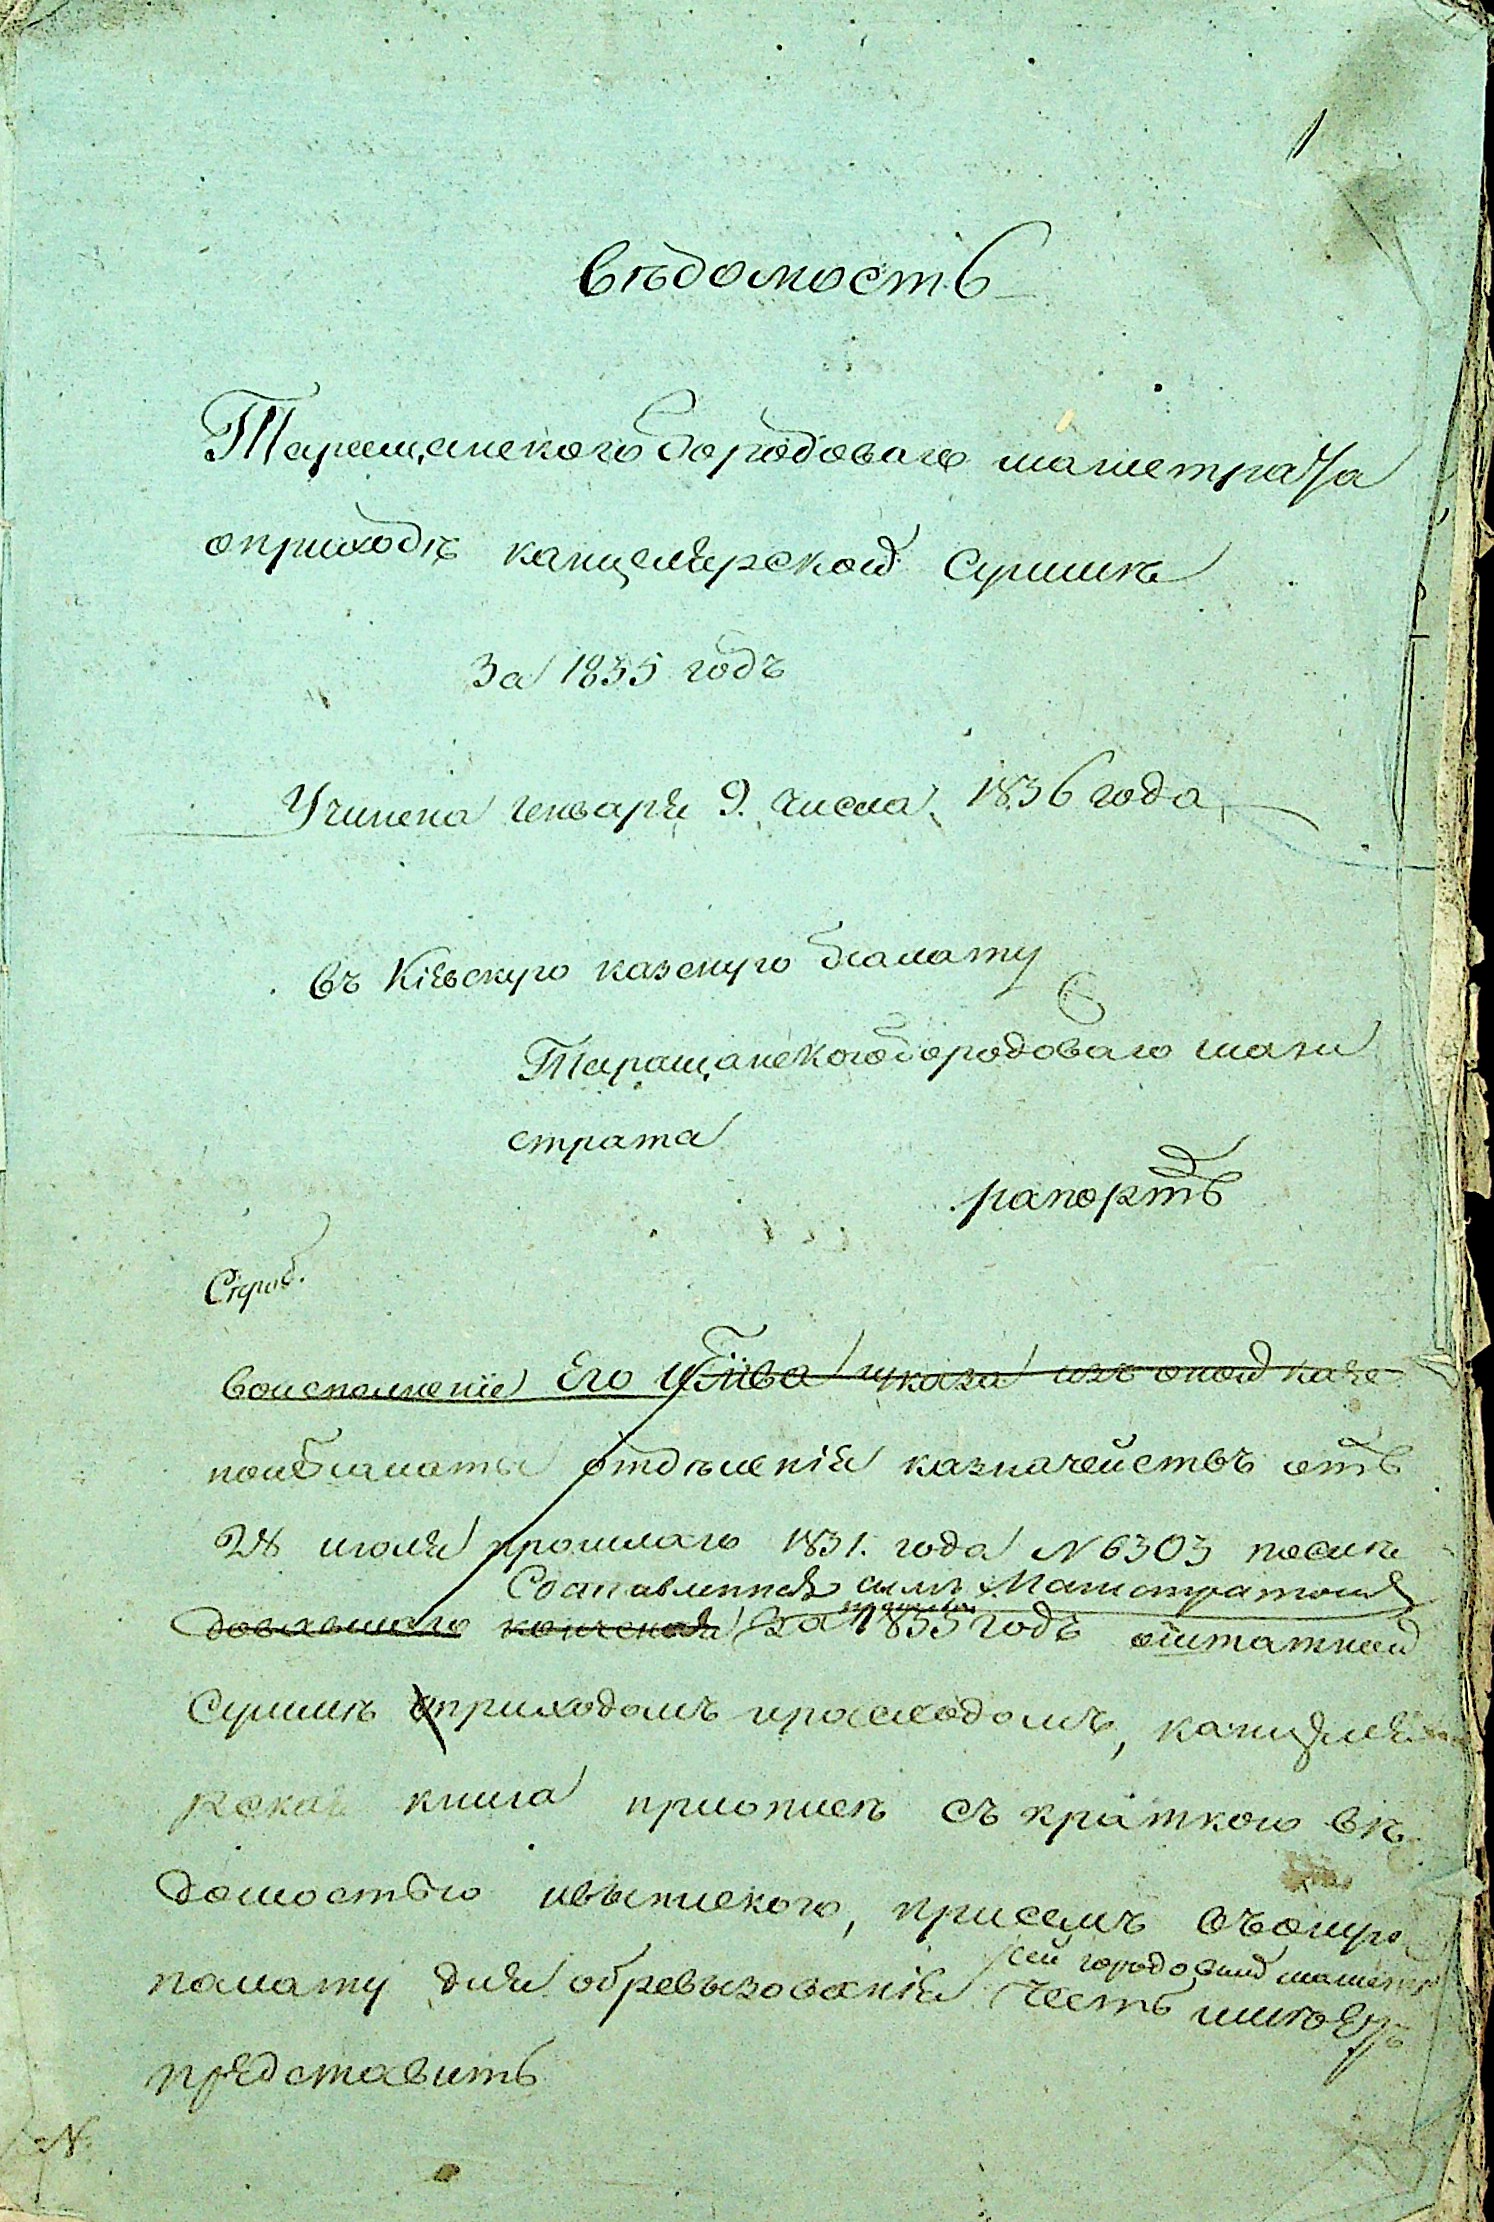 1
вѣдомость
Таращанского Городоваго магистрата
оприходѣ канцелярской Суммѣ
За 1835 годъ
Учинена генваря 9. числа 1836 года
въ Кіевскую казеную палату
Таращанского Городоваго маги
страта
рапортъ
воисполненіе Его указа изъ оной казе
ной палаты отделенія казначействъ отъ
28 июля прошлаго 1831. года N 6303 после
Составленная симъ Магистратомъ
за 1835 годъ оштатной
Суммѣ приходомъ ирасходомъ, канцеля
рская книга приописѣ съ краткою вѣ
домостью ивыпискою, присемъ въоную
сей городовый магистр
палату для обревызованія честь имѣетъ
представить
N.